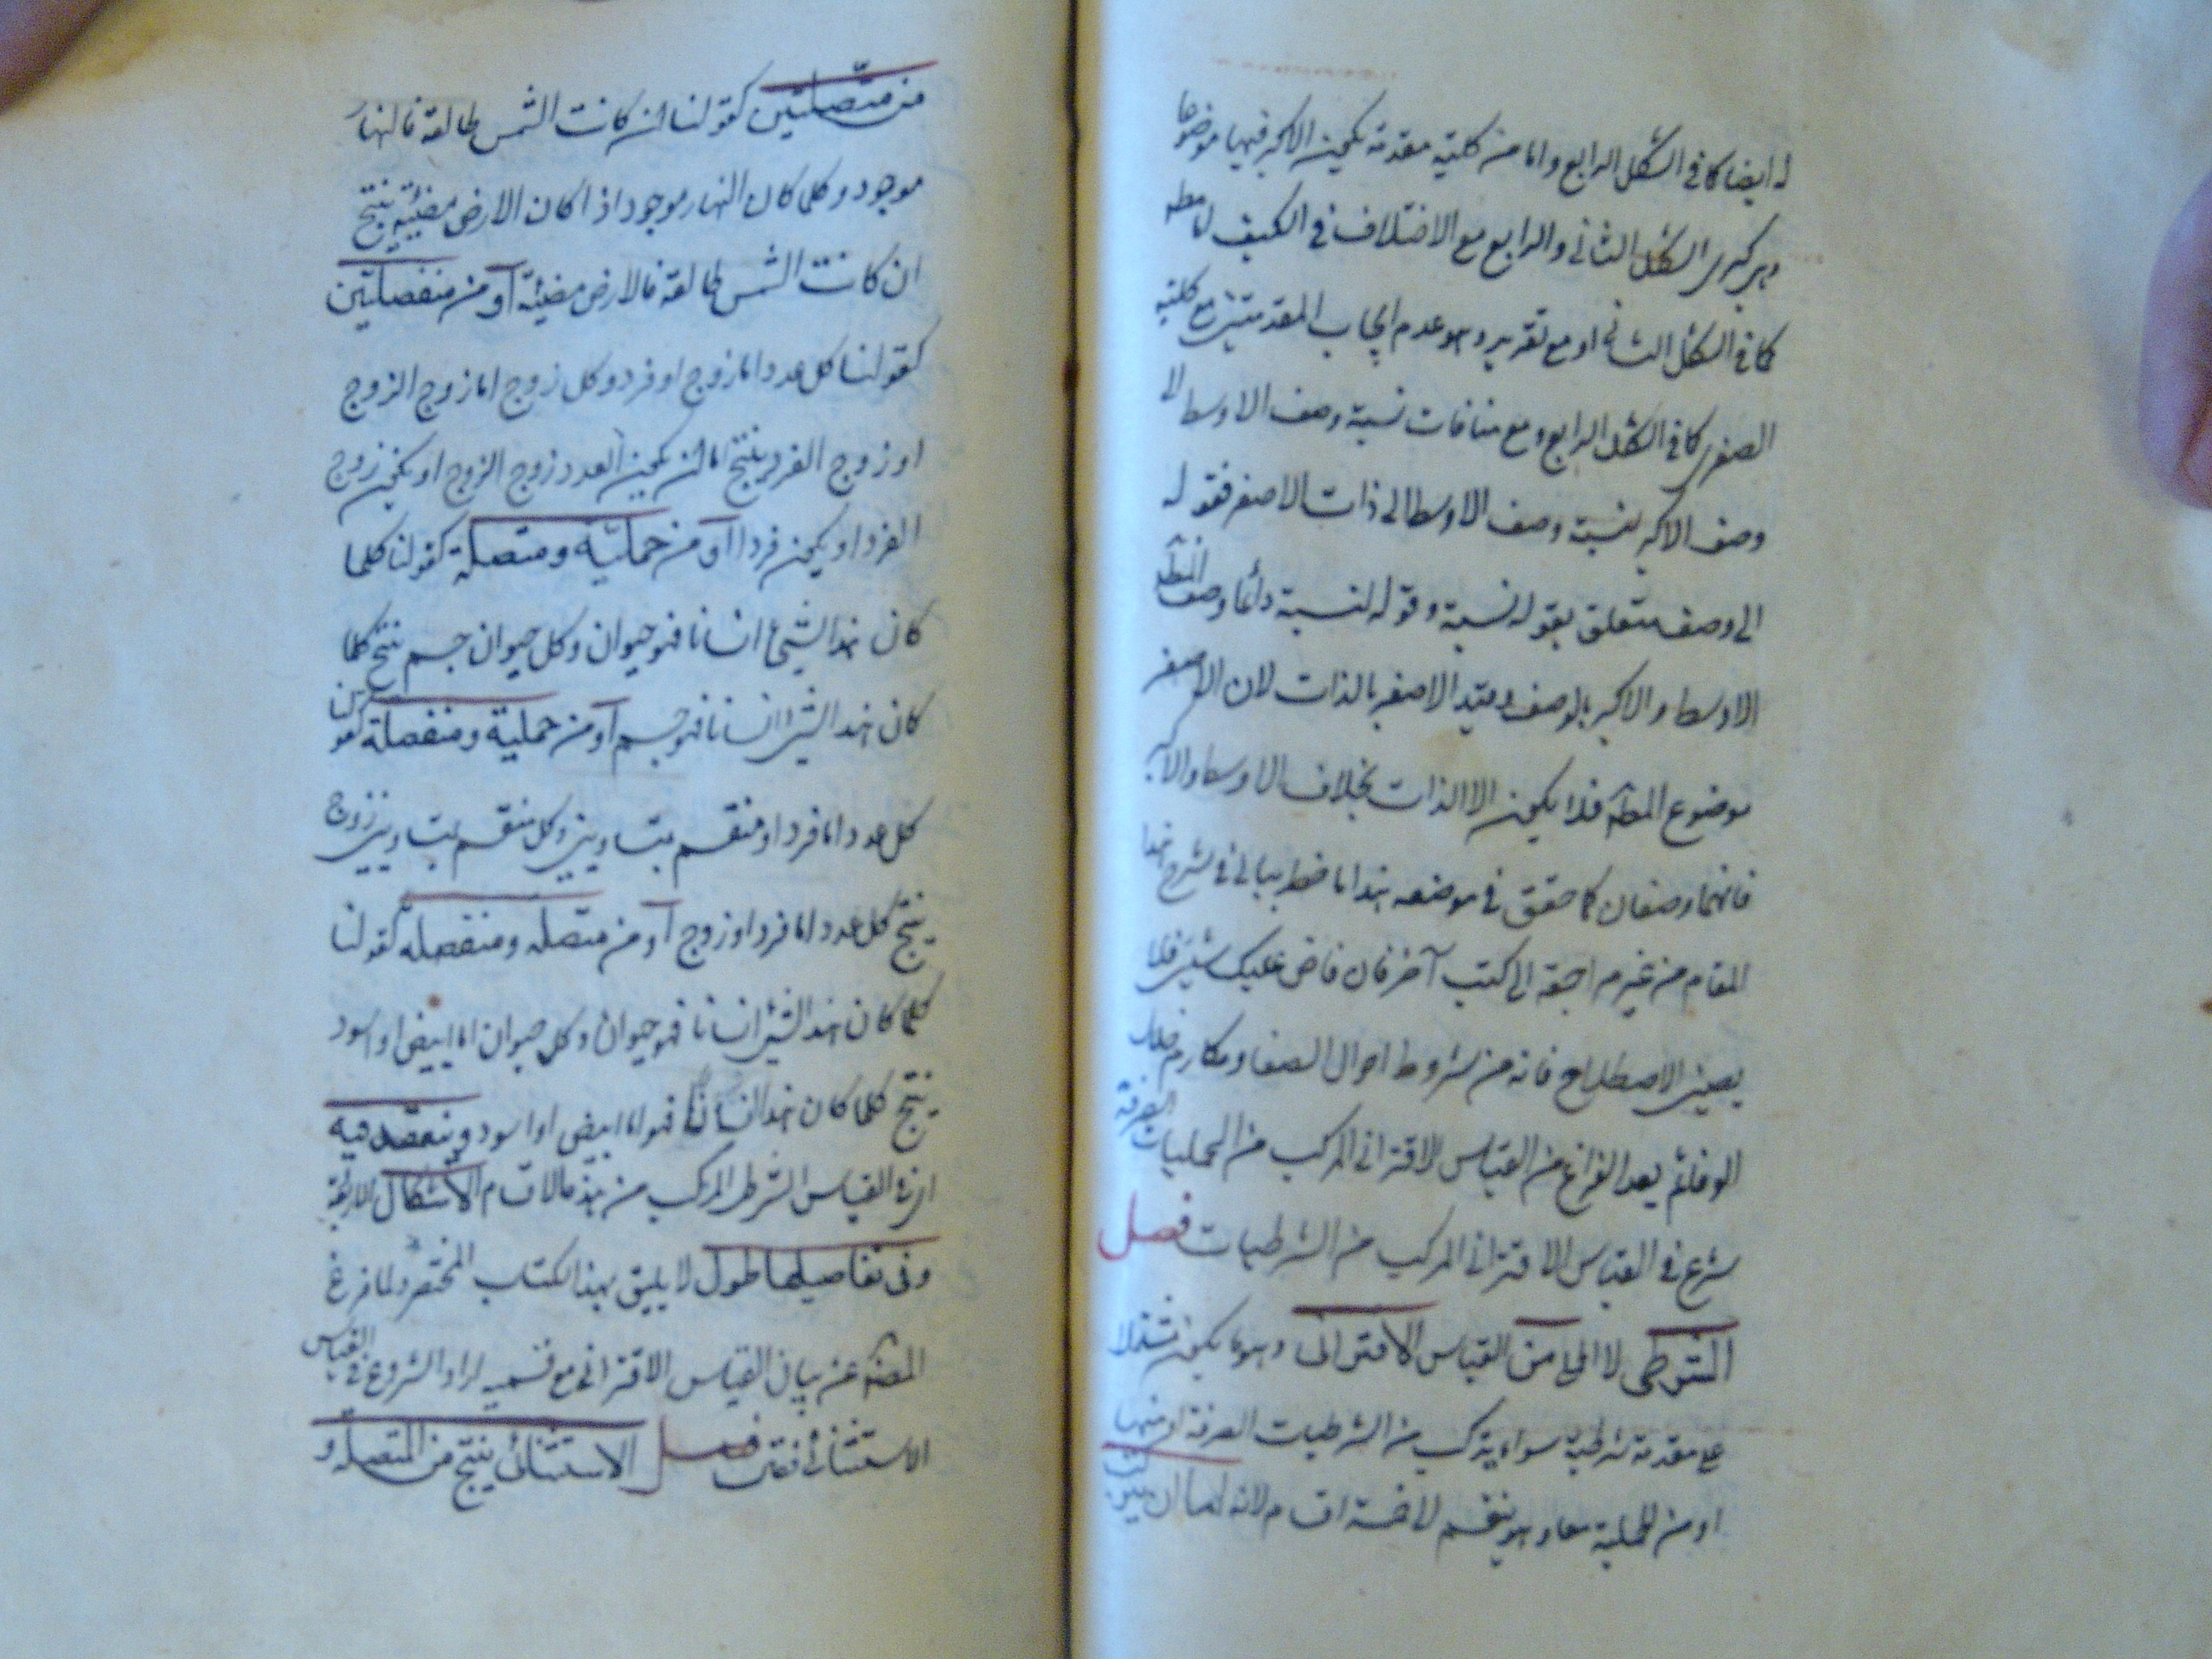 له ايضا كما في الشكل الرابع واما من كلية مقدمة يكون الاكبر فيها موضوعا
وهي كبرى الشكل الثاني والرابع مع الاختلاف في الكيف
كما في الشكل الثاني او مع تقريره وهو عدم ايجاب المقدمتين مع كلية
الصغرى كما في الشكل الرابع ومع منافات نسبة وصف الاوسط الى
وصف الاكبر لنسبة وصف الاوسط الى ذات الاصغر فقوله
الى وصف متعلق بقوله نسبة وقوله لنسبة
الاوسط والاكبر بالوصف وقيد الاصغر بالذات لان الاصغر
موضوع المط فلا يكون الا الذات بخلاف الاوسط والاكبر
فانهما وصفان كما حقق في موضعه هذا ما خطر ببالي في شرح هذا
المقام من غير مراجعة الى كتب آخر فان فاض عليك شيئ فلا
الاصطلاح فانه من شروط احوال الصفا ومكارم
الوفا ثم بعد الفراغ من القياس الاقتراني المركب من الحمليات الصرفة
شرع في القياس الاقتراني المركب من الشرطيات فصل
الشرطي لا الحملي من القياس الاقتراني وهو ما يكون مشتملا
على مقدمة شرطية سواء يتركب من الشرطيات الصرفة او منها
او من الحملية معا وهو ينقسم لا خمسة اقسام لانه اما ان يتركب
من متصلتين كقولنا ان كانت الشمس طالعة فالنهار
موجود وكلما كان النهار موجودا ذا كان الارض مضيئة ينتج
ان كانت الشمس طالعة فالارض مضيئة او من منفصلتين
كقولنا كل عدد اما زوج او فرد وكل زوج اما زوج الزوج
او زوج الفرد ينتج اما ان يكون العدد زوج الزوج او يكون زوج
الفرد او يكون فردا او من حملية ومتصلة كقولنا كلما
كان هذا الشيئ انسانا فهو حيوان وكل حيوان جسم ينتج كلما
كان هذا الشيئ انسانا فهو جسم او من حملية ومنفصلة كقولنا
كل عدد اما فرد او منقسم بمتساويين وكل منقسم بمتساويين زوج
ينتج كل عدد اما فرد او زوج او من متصلة ومنفصلة كقولنا
كلما كان هذا الشيئ انسانا فهو حيوان وكل حيوان اما ابيض او اسود
ينتج كلما كان هذا انسانا فهو اما ابيض او اسود وينعقد فيه
اي في القياس الشرطي المركب من هذه الاقسام الاشكال الاربعة
وفي تفاصيلها طول لا يليق بهذا الكتاب المختصر ولما فرغ
المص عن بيان القياس الاقتراني مع قسميه اراد الشروع في القياس
الاستثنائي فقال فصل الاستثنائي ينتج من المتصلة و